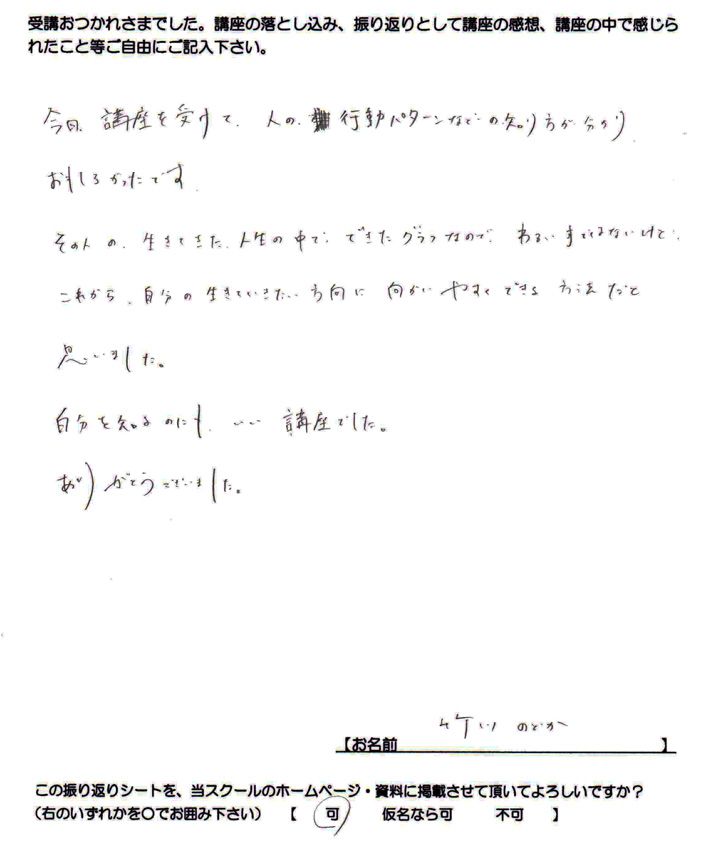 受講おつかれさまでした。講座の落とし込み、振り返りとして講座の感想、講座の中で感じら
れたこと等ご自由にご記入下さい。
今日、講座を受けて、人の、行動パターンなどの知り方が分かり
おもしろかったです
その人の、生きてきた、人生の中で、できたグラフなので、わるいすではないけど、
これから、自分の生きていきたい方向に向かいやすくできる方法だと
思いました。
自分を知るのにも、いい講座でした。
ありがとうございました。
【お名前 竹川 のどか 】
この振り返りシートを、当スクールのホームページ・資料に掲載させて頂いてよろしいですか？
（右のいずれかを〇でお囲み下さい） 【 可 仮名なら可 不可 】